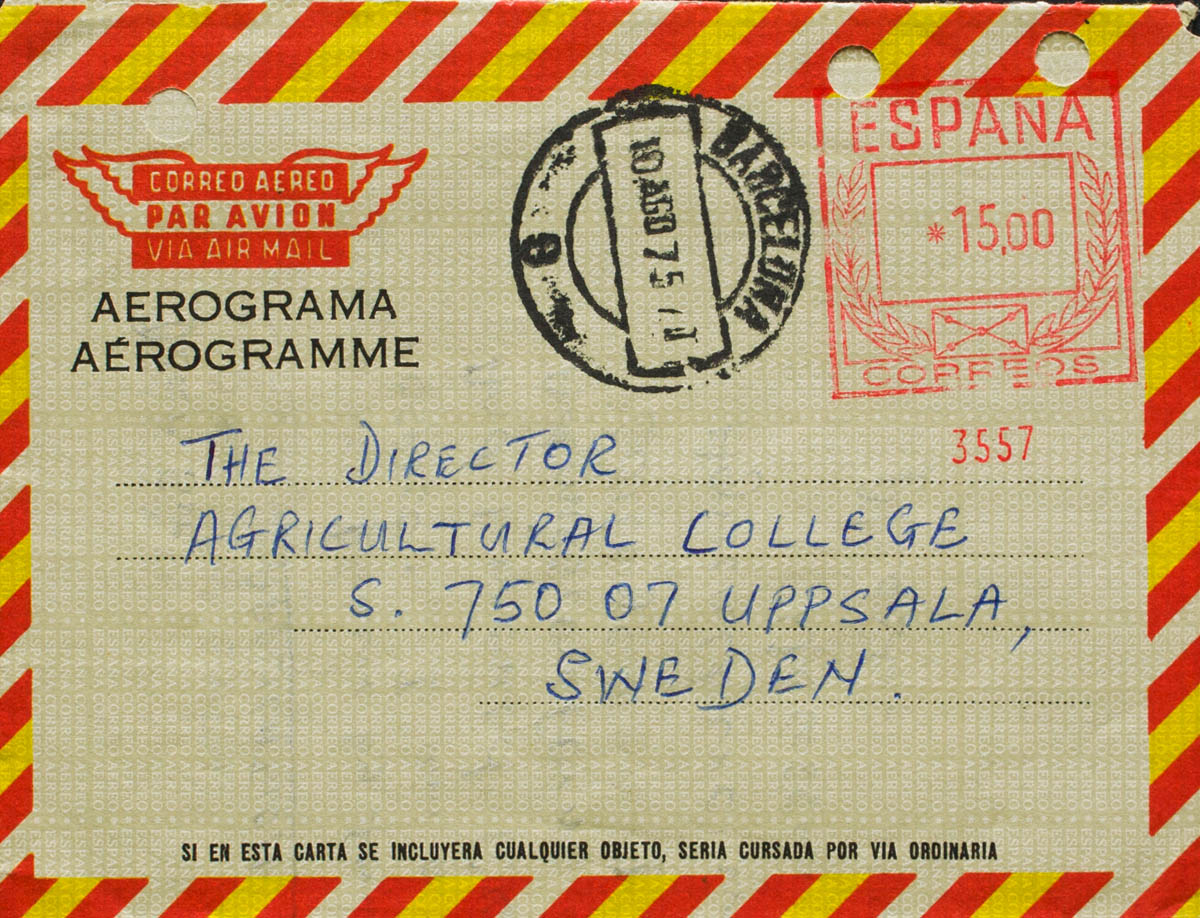 ESPAÑA
*15,00
CORREOS
3557
BARCELONA
10.AGO 75
8
CORREO AEREO
PAR AVION
VIA AIR MAIL
AEROGRAMA
AÉROGRAMME
THE DIRECTOR
AGRICULTURAL COLLEGE
S. 750 07 UPPSALA,
SWEDEN.
SI EN ESTA CARTA SE INCLUYERA CUALQUIER OBJETO, SERIA CURSADA POR VIA ORDINARIA